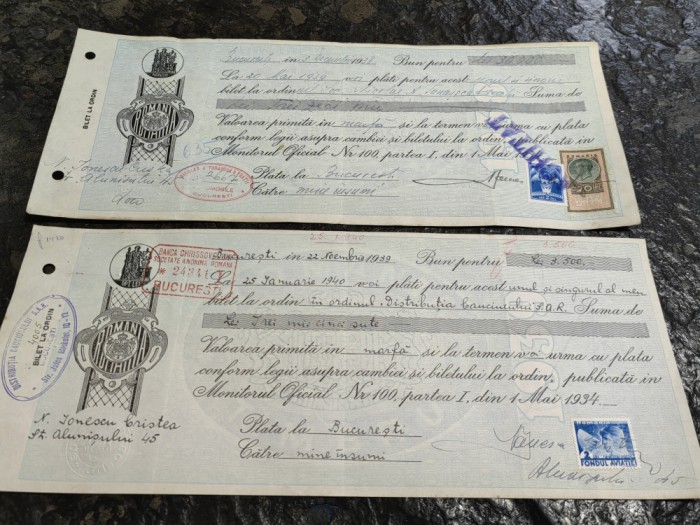 BILET LA ORDIN
ROMANIA
in 1938 Bun pentru Lei 30.000
La 20 Mai 1939 voi plăti pentru acest
bilet la ordin Suma de
Lei Trei zeci mii
Valoarea primită în marfă și la termen voi urma cu plata
conform legii asupra cambiei și biletului la ordin, publicată în
Monitorul Oficial Nr 100, partea I, din 1 Mai
Plata la București
Către mine însumi
BUCUREȘTI
ROMANIA
20 LEI
25-1-940
3.500
BANCA CHRISSOVELONI
SOCIETATE ANONIMA ROMANA
BUCUREȘTI
București in 22 Noembrie 1939 Bun pentru Lei 3.500.-
25 Ianuarie 1940 voi plăti pentru acest unul și singurul al meu
bilet la ordin în ordinul Distribuția Cauciucului S.A.R. Suma de
Lei Trei mii cinci sute
Valoarea primită în marfă și la termen voi urma cu plata
conform legii asupra cambiei și biletului la ordin, publicată în
Monitorul Oficial Nr 100, partea I, din 1 Mai 1934.
DISTRIBUȚIA CAUCIUCULUI S.A.R.
BILET LA ORDIN
ROMANIA
N. Ionescu Cristea
St. Alunișului 45
Plata la București
Către mine însumi
FONDUL AVIAȚIEI